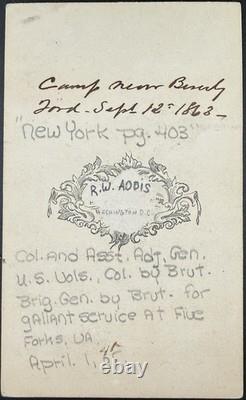 Camp near Beverly
Ford - Sept 12th 1863 -
"New York pg. 403"
R.W. ADDIS
WASHINGTON D.C.
Col. and Asst. Adj. Gen.
U.S. Vols., Col. by Brvt.
Brig. Gen. by Brvt. for
gallant service at Five
Forks, VA.
April 1,
ebay